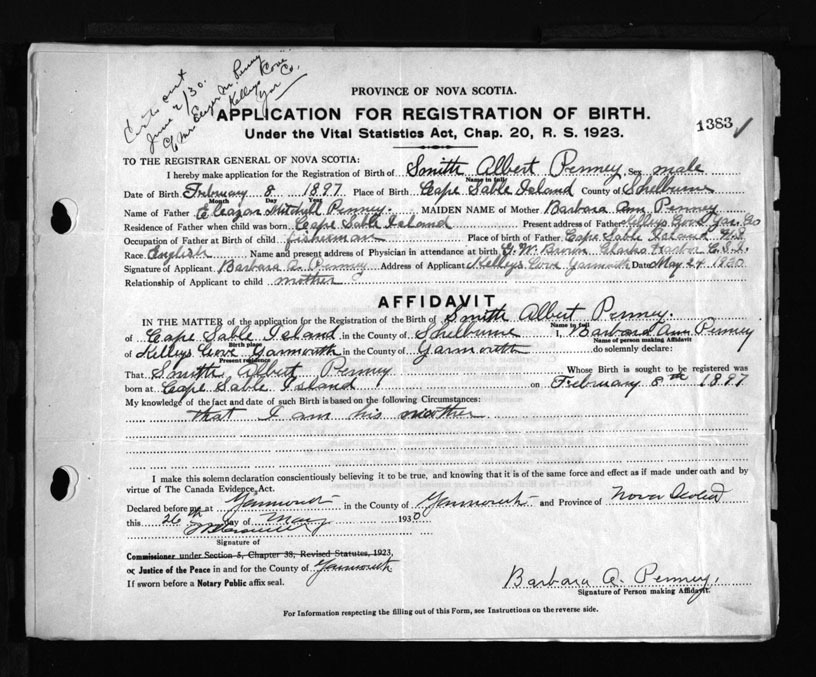 Cert. out
June 2/30.
c/o Mrs M. Penny
Kellys Cove
Yar Co.
PROVINCE OF NOVA SCOTIA.
APPLICATION FOR REGISTRATION OF BIRTH.
1383 ✓
Under the Vital Statistics Act, Chap. 20, R. S. 1923.
TO THE REGISTRAR GENERAL OF NOVA SCOTIA:
I hereby make application for the Registration of Birth of Smith Albert Penney Sex male
Name in full
Date of Birth February 8 1897 Place of Birth Cape Sable Island County of Shelburne
Month Day Year
Name of Father Eleazar Mitchell Penney. MAIDEN NAME of Mother Barbara Ann Penney
Residence of Father when child was born Cape Sable Island Present address of Father Kelleys Cove Yar. Co
Occupation of Father at Birth of child fisherman Place of birth of Father Cape Sable Island N.S
Race English Name and present address of Physician in attendance at birth W. Brown Clarks Harbor C.S.I.
Signature of Applicant Barbara A. Penney Address of Applicant Kelleys Cove Yarmouth Date May 24 1930
Relationship of Applicant to child mother
AFFIDAVIT
IN THE MATTER of the application for the Registration of the Birth of Smith Albert Penney.
Name in full
of Cape Sable Island in the County of Shelburne I, Barbara Ann Penney
Birth place Name of person making Affidavit
of Kelleys Cove Yarmouth in the County of Yarmouth do solemnly declare:
Present residence
That Smith Albert Penney Whose Birth is sought to be registered was
born at Cape Sable Island on February 8th 1897
My knowledge of the fact and date of such Birth is based on the following Circumstances:
that I am his mother
I make this solemn declaration conscientiously believing it to be true, and knowing that it is of the same force and effect as if made under oath and by
virtue of The Canada Evidence Act.
Declared before me at Yarmouth in the County of Yarmouth and Province of Nova Scotia
this 26th day of May 1930
Signature of
Commissioner under Section 5, Chapter 38, Revised Statutes, 1923,
or Justice of the Peace in and for the County of Yarmouth
If sworn before a Notary Public affix seal.
Barbara A. Penney.
Signature of Person making Affidavit.
For Information respecting the filling out of this Form, see Instructions on the reverse side.